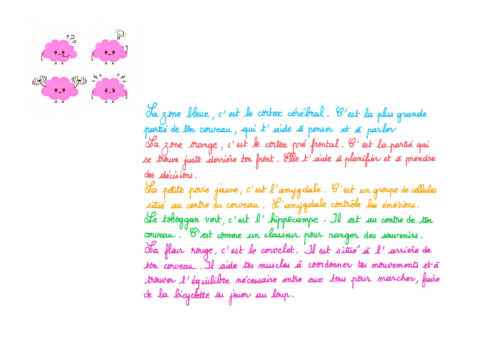 La zone bleue, c'est le cortex cérébral. C'est la plus grande
partie de ton cerveau, qui t'aide à penser et à parler
La zone orange, c'est le cortex pré frontal. C'est la partie qui
se trouve juste derrière ton front. Elle t'aide à planifier et à prendre
des décisions.
La petite poire jaune, c'est l'amygdale. C'est un groupe de cellules
situé au centre du cerveau. L'amygdale contrôle les émotions.
Le toboggan vert, c'est l'hippocampe. Il est au centre de ton
cerveau. C'est comme un classeur pour ranger des souvenirs.
La fleur rouge, c'est le cervelet. Il est situé à l'arrière de
ton cerveau. Il aide tes muscles à coordonner tes mouvements et à
trouver l'équilibre nécessaire entre eux tous pour marcher, faire
de la bicyclette ou jouer au loup.